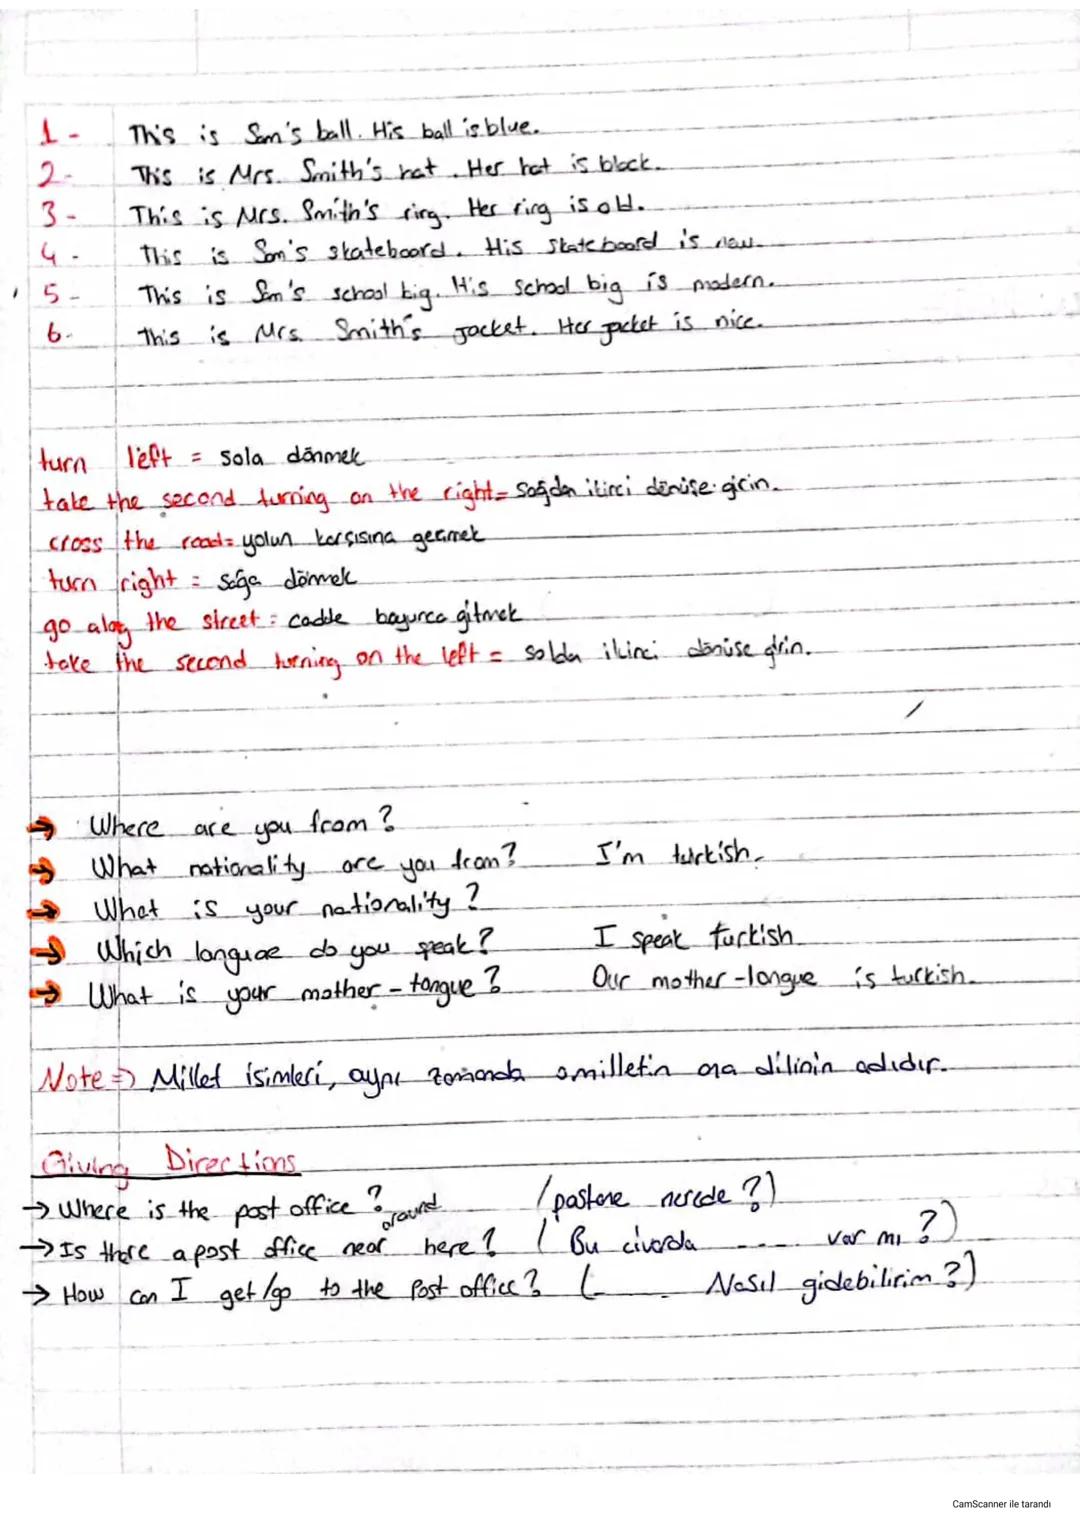 1 - This is Sam's ball. His ball is blue.
2 - This is Mrs. Smith's hat. Her hat is black.
3 - This is Mrs. Smith's ring. Her ring is old.
4 - This is Sam's skateboard. His skateboard is new.
5 - This is Sam's school big. His school big is modern.
6 - This is Mrs. Smith's jacket. Her jacket is nice.
turn left = sola dönmek
take the second turning on the right = Sağdan ikinci dönüşe girin.
cross the road = yolun karşısına geçmek
turn right = Sağa dönmek
go along the street = cadde boyunca gitmek
take the second turning on the left = solda ikinci dönüse girin.
→ Where are you from?
→ What nationality are you from? I'm turkish.
→ What is your nationality?
→ Which languae do you speak? I speak turkish
→ What is your mother - tongue? Our mother - longue is turkish.
Note ⇒ Millet isimleri, aynı zamanda o milletin ana dilinin adıdır.
Giving Directions
→ Where is the post office? (postane nerede?)
around
→ Is there a post office near here? ( Bu civarda ---- var mı?)
→ How can I get/go to the Post office? (____ Nasıl gidebilirim?)
CamScanner ile tarandı